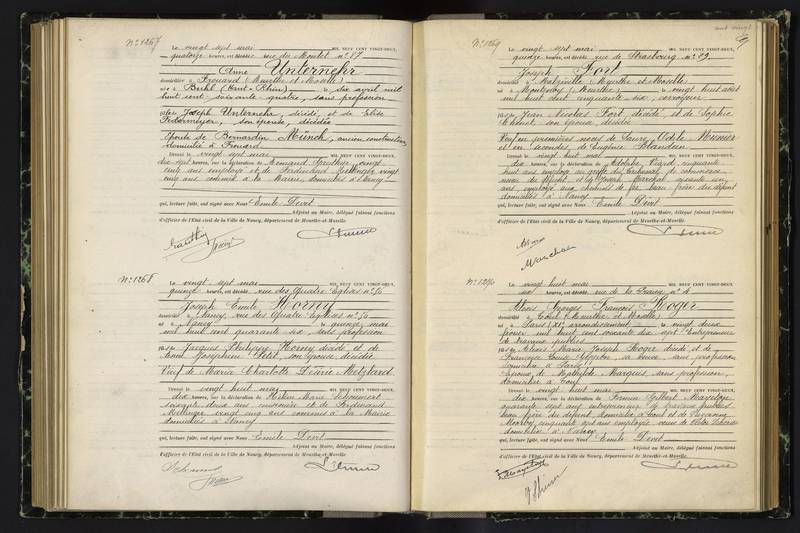 N° 1267
Le vingt sept mai MIL NEUF CENT VINGT-DEUX,
quatorze heures, est décédée rue du Montet n° 87
Anne Unternehr
domiciliée à Frouard (Meurthe et Moselle)
née à Buhl (Haut-Rhin) le dix avril mil
huit cent soixante quatre, sans profession
Fille de Joseph Unternehr, décédé, et de Elise
son épouse, décédée
Epouse de Bernardin Münch, ancien constructeur
domicilié à Frouard
Dressé le vingt sept mai MIL NEUF CENT VINGT-DEUX,
dix sept heures, sur la déclaration de Gauthier, vingt
cinq ans employé et de Ferdinand vingt
cinq ans commis à la Mairie, domiciliés à Nancy
qui, lecture faite, ont signé avec Nous Emile Devit
Adjoint au Maire, délégué faisant fonctions
d'officier de l'Etat civil de la Ville de Nancy, département de Meurthe-et-Moselle.
N° 1268
Le vingt sept mai MIL NEUF CENT VINGT-DEUX,
quinze heures, est décédé rue des Quatre Eglises n° 50
Joseph Emile Horny
domicilié à Nancy, rue des Quatre Eglises n° 50
né à Nancy le quinze mai
mil huit cent quarante six, sans profession
Fils de Jacques Philippe Horny décédé et de
Josephine Petit, son épouse décédée
Veuf de Maria Charlotte Désirée
Dressé le vingt huit mai MIL NEUF CENT VINGT-DEUX,
dix heures, sur la déclaration de Marie
soixante deux ans et de Ferdinand
vingt cinq ans commis à la Mairie
domiciliés à Nancy
qui, lecture faite, ont signé avec Nous Emile Devit
Adjoint au Maire, délégué faisant fonctions
d'officier de l'Etat civil de la Ville de Nancy, département de Meurthe-et-Moselle.
cent vingt
N° 1269
Le vingt sept mai MIL NEUF CENT VINGT-DEUX,
quinze heures, est décédé rue de Strasbourg n° 89
Joseph Fort
domicilié à Malzéville (Meurthe et Moselle)
né à (Meurthe) le vingt huit août
mil huit cent cinquante six,
Fils de Jean Nicolas Fort, décédé et de Sophie
son épouse décédée
Veuf en premières noces de Odile Meunier
et en secondes de Eugénie Blandin
Dressé le vingt huit mai MIL NEUF CENT VINGT-DEUX,
dix heures, sur la déclaration de Adolphe Viard cinquante
huit ans employé au greffe du tribunal de commerce
neveu du défunt et de Joseph Marchal soixante cinq
ans employé aux chemins de fer, beau frère du défunt
domiciliés à Nancy
qui, lecture faite, ont signé avec Nous Emile Devit
Adjoint au Maire, délégué faisant fonctions
d'officier de l'Etat civil de la Ville de Nancy, département de Meurthe-et-Moselle.
Marchal
N° 1270
Le vingt huit mai MIL NEUF CENT VINGT-DEUX,
six heures, est décédé rue de la Prairie n° 4
Alexis Georges François Roger
domicilié à Toul (Meurthe et Moselle)
né à Paris (XI arrondissement) le vingt deux
février mil huit cent soixante dix sept Entrepreneur
de travaux publics
Fils de Alexis Marie Joseph Roger décédé et de
Françoise Louise sa veuve sans profession
domiciliée à Paris
Epoux de Mathilde Marquis, sans profession,
domiciliée à Toul
Dressé le vingt huit mai MIL NEUF CENT VINGT-DEUX,
dix heures, sur la déclaration de Firmin Gilbert
quarante sept ans entrepreneur de travaux publics
beau frère du défunt, domicilié à Toul et de Suzanne
cinquante sept ans employée
domiciliée à Nancy
qui, lecture faite, ont signé avec Nous Emile Devit
Adjoint au Maire, délégué faisant fonctions
d'officier de l'Etat civil de la Ville de Nancy, département de Meurthe-et-Moselle.